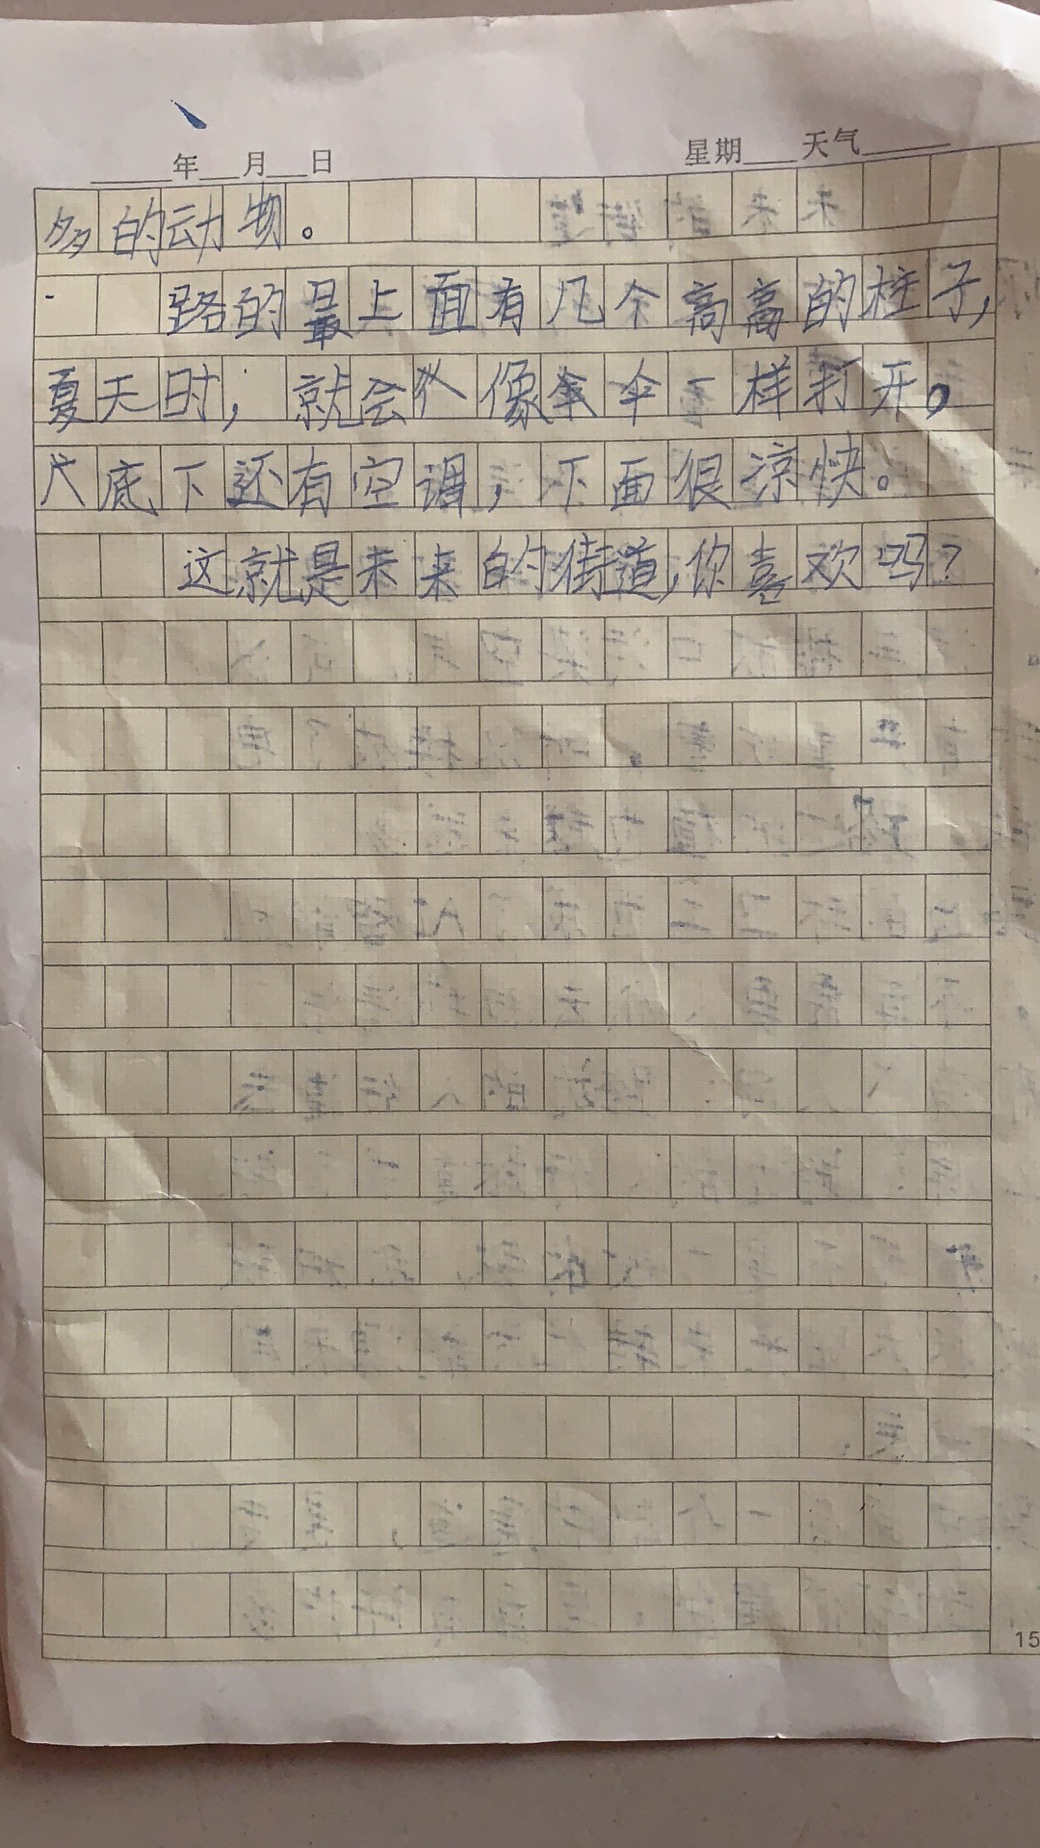 年 月 日 星期 天气
多的动物。
路的最上面有几个高高的柱子,
夏天时,就会像伞一样打开。
底下还有空调,下面很凉快。
这就是未来的街道,你喜欢吗?
15